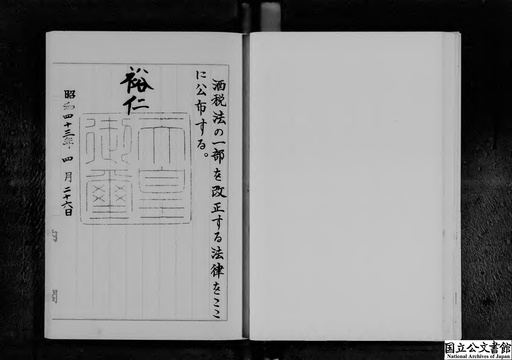 酒税法の一部を改正する法律をここ
に公布する。
裕仁
天皇
御璽
昭和四十三年四月二十六日
国立公文書館
National Archives of Japan